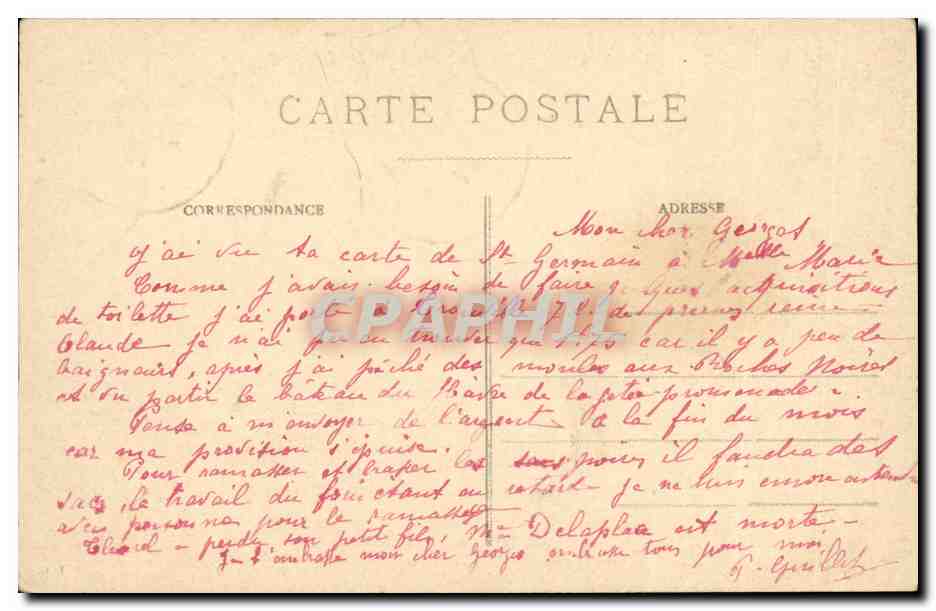 CARTE POSTALE
CORRESPONDANCE
ADRESSE
Mon cher Georges
J'ai vu ta carte de St Germain à Melle Marie
Comme j'avais besoin de faire qques acquisitions
de toilette j'ai porté à 7 l. de prunes reine
Claude je n'ai pu en vendre que car il y a peu de
baigneurs, après j'ai pêché des moules aux Roches Noires
et vu partir le bâteau du Hâvre de la jetée promenade.
Pense à m'envoyer de l'argent à la fin du mois
car ma provision s'épuise.
Pour ramasser et les poires il faudra des
sacs, le travail du en retard je ne suis encore
avec personne pour le ramassage
perdu son petit fils, Me Delaplace est morte -
Je t'embrasse mon cher Georges embrasse tous pour moi
CPAPHIL